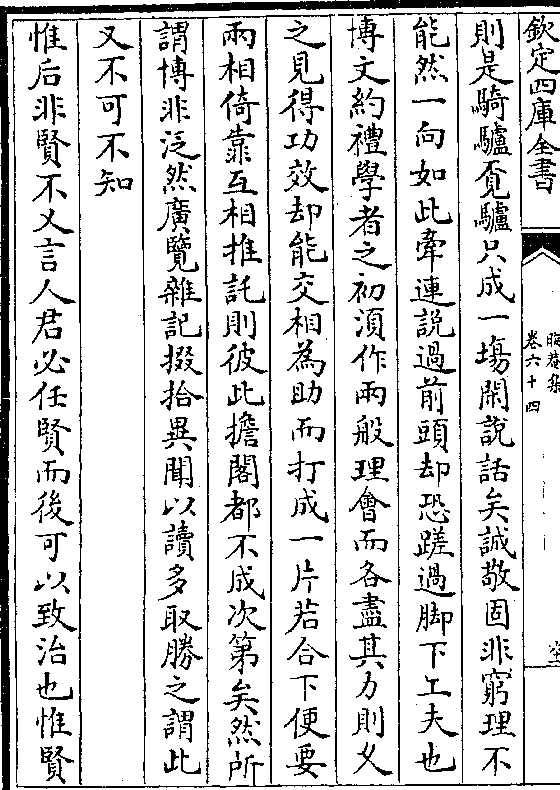 欽定四庫全書
晦菴集
卷六十四
則是騎驢覓驢只成一場閑說話矣誠敬固非窮理不
能然一向如此牽連說過前頭却恐蹉過脚下工夫也
博文約禮學者之初須作兩般理會而各盡其力則久
之見得功效却能交相為助而打成一片若合下便要
兩相倚靠互相推託則彼此擔閣都不成次第矣然所
謂博非泛然廣覽雜記掇拾異聞以讀多取勝之謂此
又不可不知
惟后非賢不乂言人君必任賢而後可以致治也惟賢